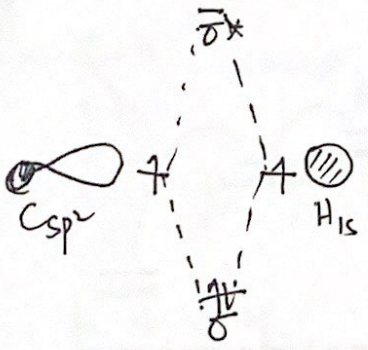 σ*
C_{sp²} H_{1s}
σ